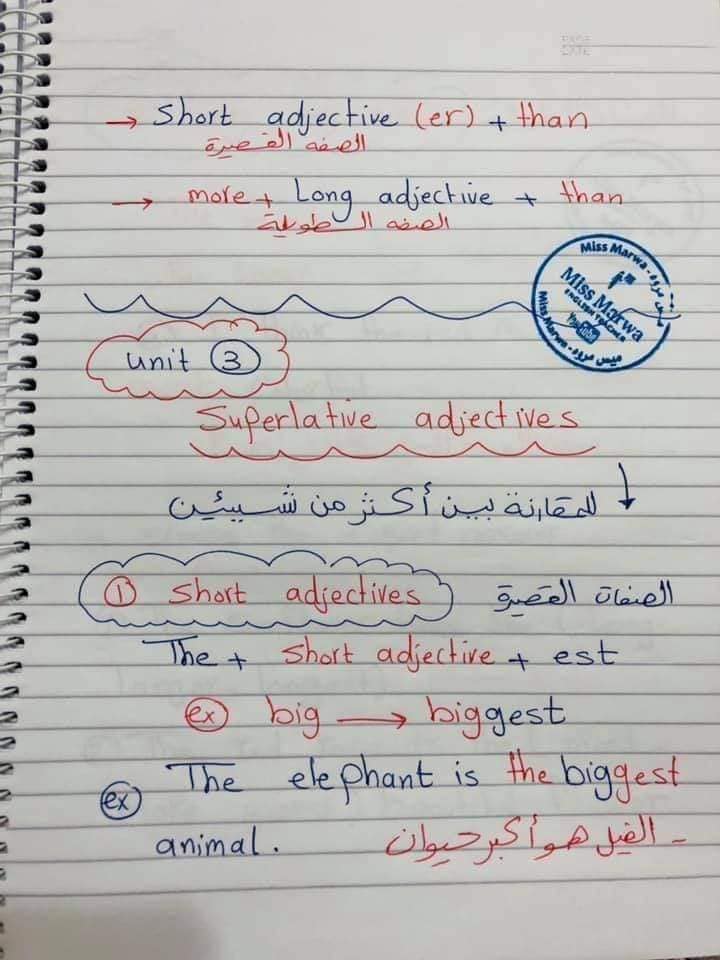 PAGE
DATE
→ Short adjective (er) + than
الصفه القصيرة
→ more + Long adjective + than
الصفه الطويلة
Miss Marwa - ميس مروه
Miss Marwa
ENGLISH TEACHER
YouTube
Miss Marwa - ميس مروه
unit ③
Superlative adjectives
للمقارنة بين أكثر من شيئين ↓
① Short adjectives الصفات القصيرة
The + Short adjective + est
ex big → biggest
ex The elephant is the biggest
animal. - الفيل هو أكبر حيوان